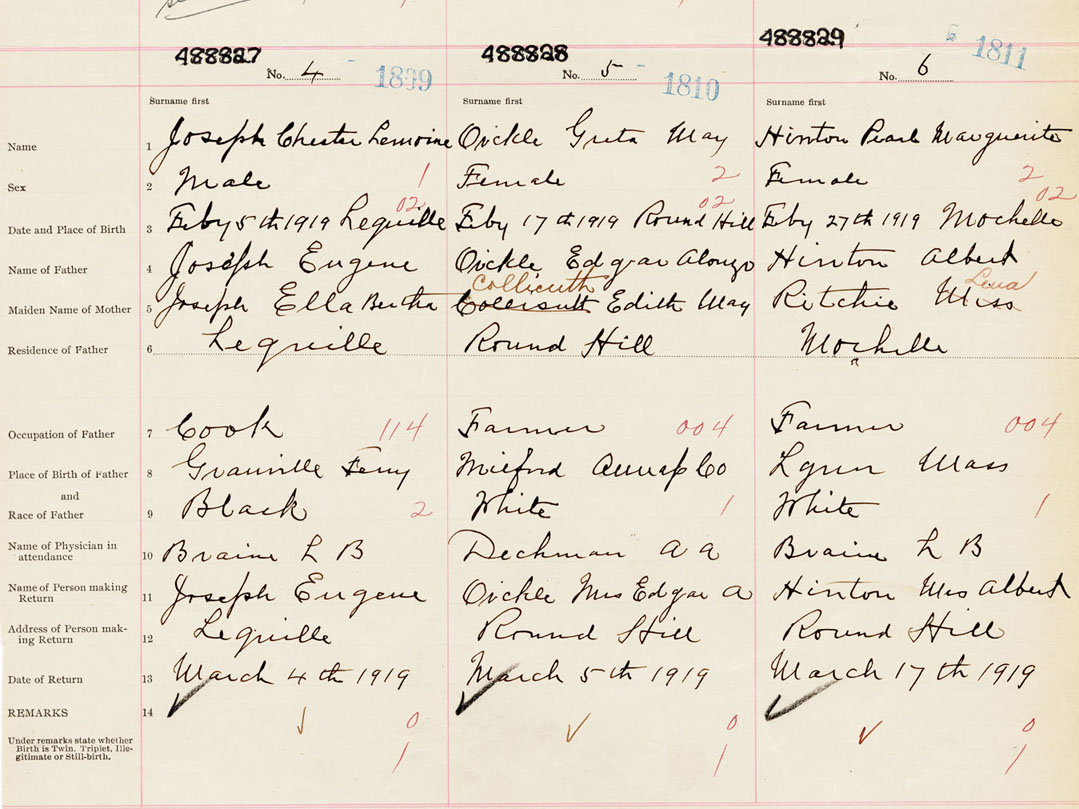 488827 488828 488829
No. 4 1809 No. 5 1810 No. 6 1811
Surname first Surname first Surname first
Name 1 Joseph Chester Lemoine Oickle Greta May Hinton Pearl Marguerite
Sex 2 Male 1 Female 2 Female 2
02 02 02
Date and Place of Birth 3 Feby 5th 1919 Lequille Feby 17th 1919 Round Hill Feby 27th 1919 Mochelle
Name of Father 4 Joseph Eugene Oickle Edgar Alonzo Hinton Albert
Collicutt Lena
Maiden Name of Mother 5 Joseph Ella Bertha Edith May Ritchie Miss
Residence of Father 6 Lequille Round Hill Mochelle
Occupation of Father 7 Cook 114 Farmer 004 Farmer 004
Place of Birth of Father 8 Granville Ferry Milford Annap Co Lynn Mass
and
Race of Father 9 Black 2 White 1 White 1
Name of Physician in
attendance 10 Braine L B Dechman A A Braine L B
Name of Person making
Return 11 Joseph Eugene Oickle Mrs Edgar A Hinton Mrs Albert
Address of Person mak-
ing Return 12 Lequille Round Hill Round Hill
Date of Return 13 March 4th 1919 March 5th 1919 March 17th 1919
REMARKS 14
0 0 0
Under remarks state whether
Birth is Twin, Triplet, Ille-
gitimate or Still-birth.
1 1 1